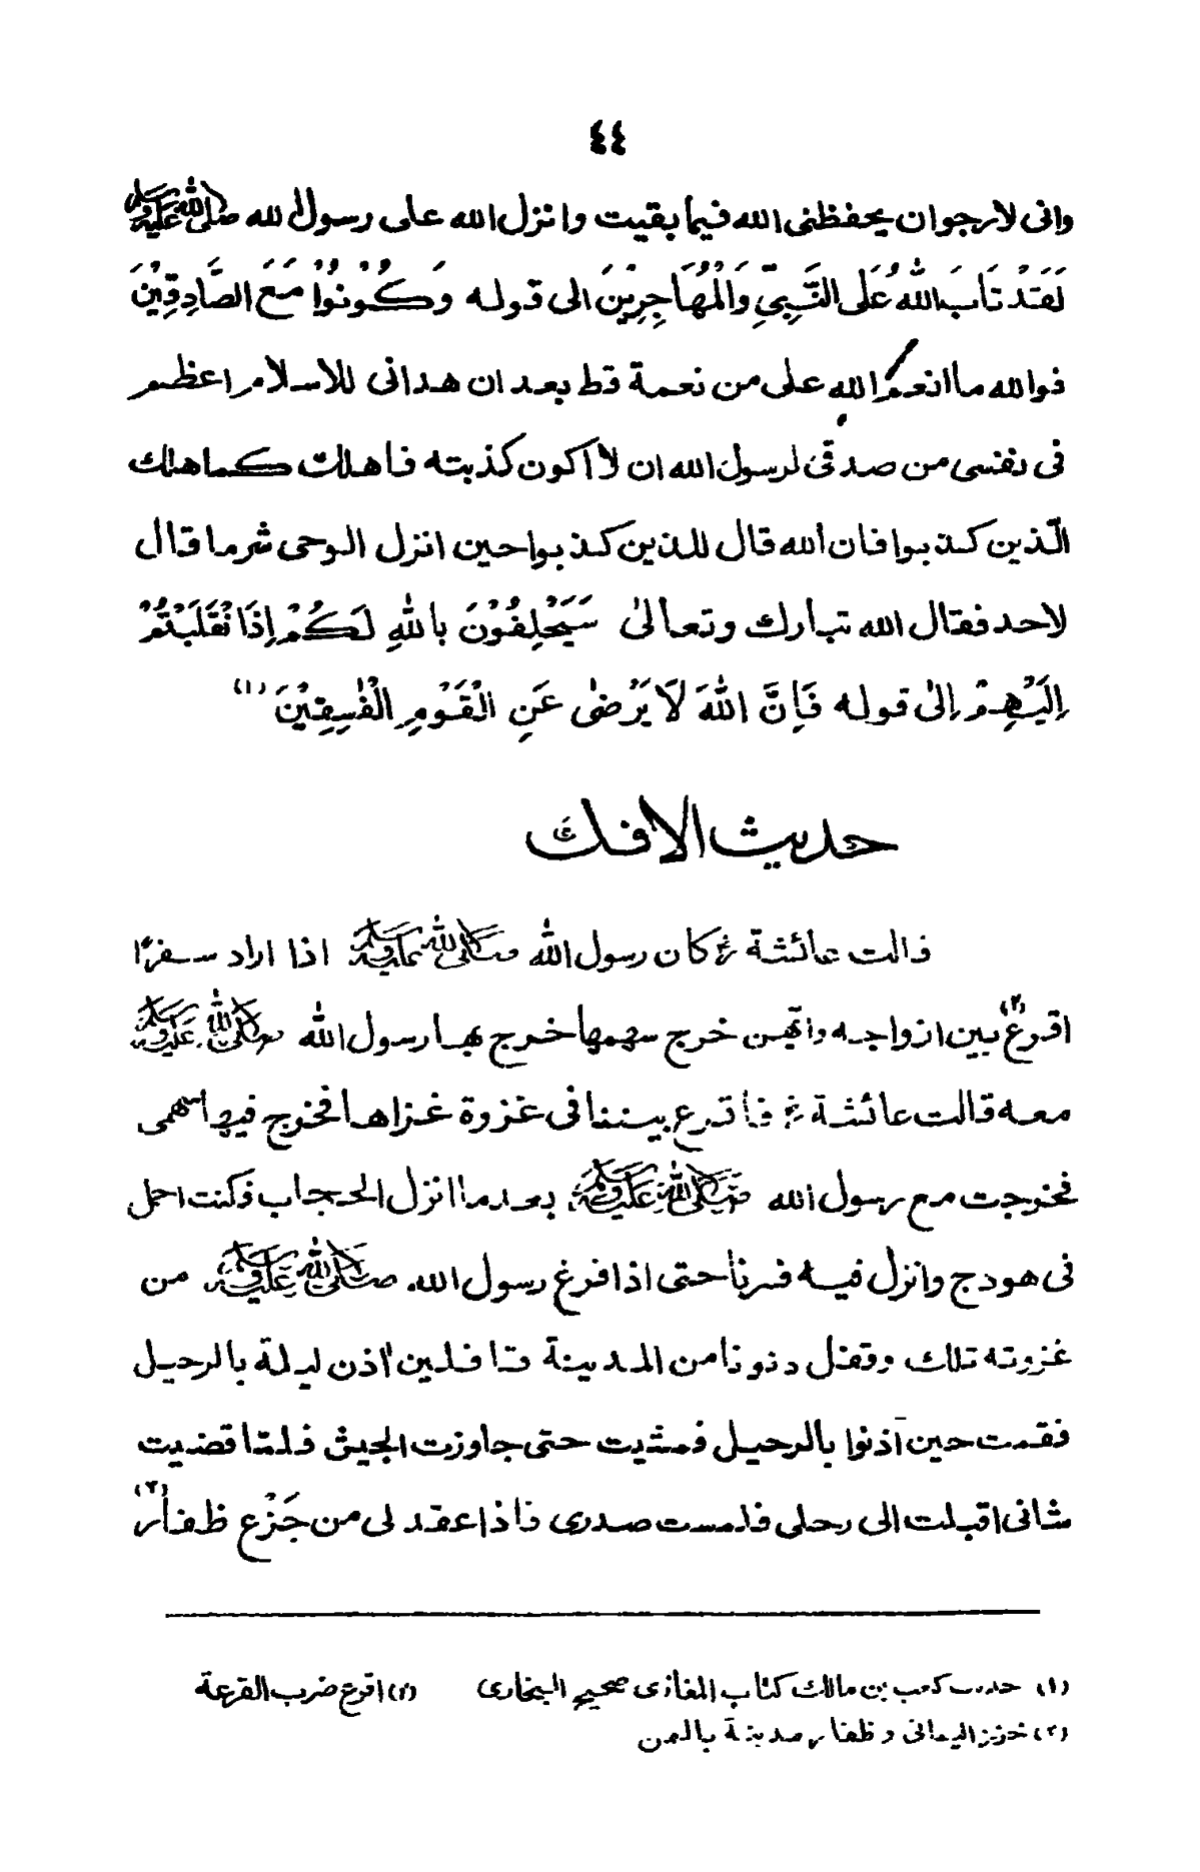 ٤٤
وانى لارجوان يحفظنى الله فيما بقيت وانزل الله على رسول الله ﷺ
لَقَدْ تَابَ اللهُ عَلَى النَّبِيِّ وَالْمُهَاجِرِيْنَ الى قوله وَكُوْنُوْا مَعَ الصَّادِقِيْنَ
فوالله ما انعم الله على من نعمة قط بعد ان هدانى للاسلام اعظم
فى نفسى من صدقى لرسول الله ان لا اكون كذبته فاهلك كما هلك
الّذين كذبوا فان الله قال للذين كذبوا حين انزل الوحى شر ما قال
لاحد فقال الله تبارك وتعالىٰ سَيَحْلِفُوْنَ بِاللهِ لَكُمْ اِذَا نْقَلَبْتُمْ
اِلَيْهِمْ اِلىٰ قوله فَاِنَّ اللهَ لَا يَرْضىٰ عَنِ الْقَوْمِ الْفٰسِقِيْنَ (١)
حديث الافك
قالت عائشة رض كان رسول الله ﷺ اذا اراد سفرًا
اقرع (٢) بين ازواجه وايّهن خرج سهمها خرج بها رسول الله ﷺ
معه قالت عائشة رض فاقرع بيننا فى غزوة غزاها فخرج فيها سهمى
فخرجت مع رسول الله ﷺ بعد ما انزل الحجاب فكنت احمل
فى هودج وانزل فيه فسرنا حتى اذا فرغ رسول الله ﷺ من
غزوته تلك وقفل دنونا من المدينة قافلين اذن ليلة بالرحيل
فقمت حين آذنوا بالرحيل فمشيت حتى جاوزت الجيش فلمّا قضيت
شانى اقبلت الى رحلى فلمست صدرى فاذا عقد لى من جَزْع ظفار (٣)
(١) حديث كعب بن مالك كتاب المغازى صحيح البخارى (٢) اقرع ضرب القرعة
(٣) خرز اليمانى و ظفار مدينة باليمن